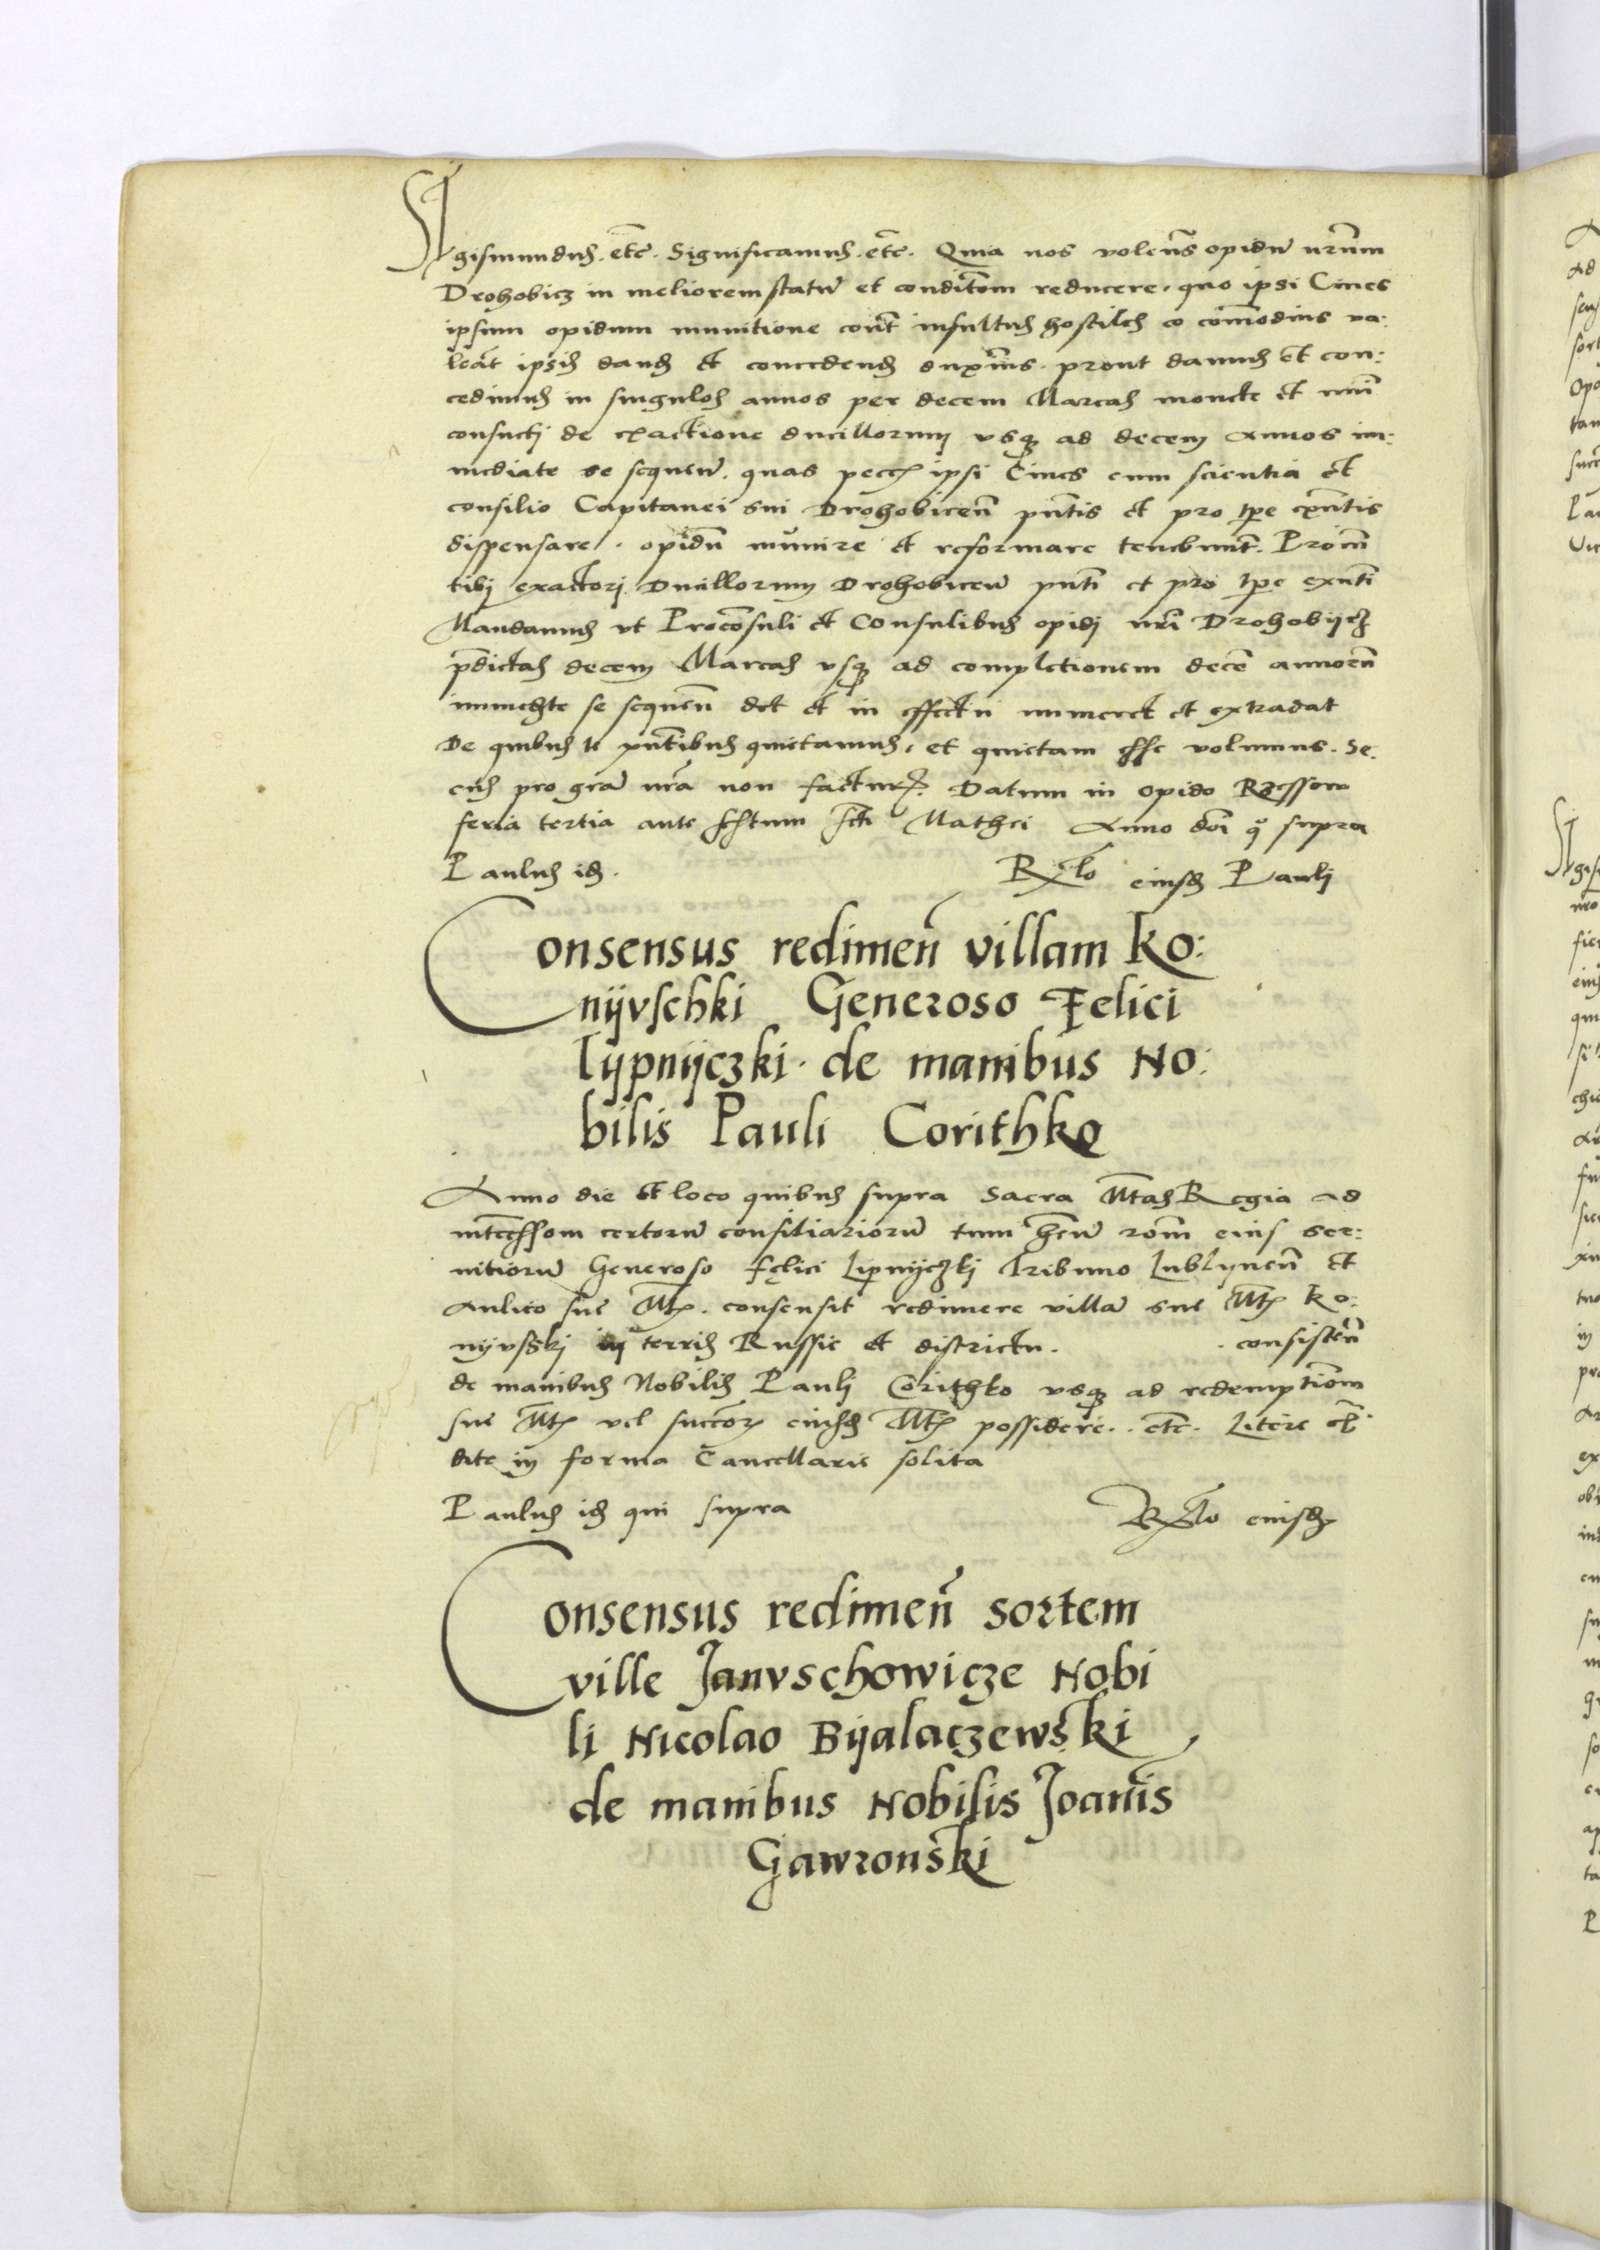 Sigismundus. etc. Significamus. etc. Quia nos volentes opidum nrum
Drohobicz in meliorem statum et conditom reducere. quo ipsi Cives
ipsum opidum munitione cont insultus hostiles eo comodius va:
leat ipsis dand et concedend duximus. prout damus et con:
cedimus in singulos annos per decem Marcas monete et nui
consueti de exactione ducillorum usq ad decem annos im:
mediate se sequen. quas pecc ipsi Cives cum scientia et
consilio Capitanei sui Drohobicen pntis et pro tpe exntis
dispensare. opidum munire et reformare tenebunt. Proin
tibi exactori Ducillorum Drohobicen pnti et pro tpe exnti
Mandamus ut Proconsuli et Consulibus opidi nri Drohobijcz
pdictas decem Marcas usq ad completionem decem annorum
immediate se sequen det et in effectu numeret et extradat
De quibus te pntibus quictamus, et quictam esse volumus. Se:
cus pro gra nra non factur. Datum in opido Rzessow
feria tertia ante festum scti Mathei Anno dni quo supra
Paulus id. Rlo eiusd Pauli
Consensus redimen villam Ko:
nijvschki Generoso Felici
lypnijczki. de manibus No:
bilis Pauli Corithko
Anno die et loco quibus supra Sacra Mtas Regia ad
intcessom certorum consiliariorum tum hens rom eius ser:
vitiorum Generoso felici Lipnijczkj Tribuno Lublynen et
Aulico sue Mtis. consensit redimere villam sue Mtis Ko:
nijvsski in terris Russie et districtu. . consisten
de manibus Nobilis Pauli Corithko usq ad redemptiom
sue Mtis vel succor eiusd Mtis possidere. . etc. Litere
dite in forma Cancellarie solita
Paulus id qui supra Rlo eiusd
Consensus redimen sortem
ville Janvschowicze Nobi
li Nicolao Bijalaczewski
de manibus Nobilis Joannis
Gawronski